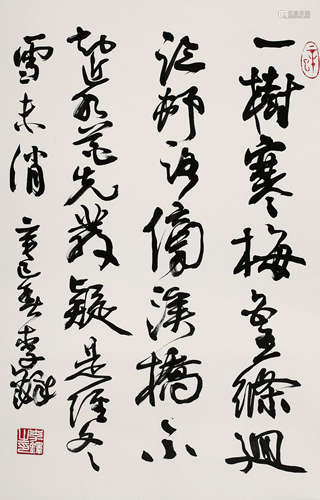 一樹寒梅白玉條迥
臨邨路傍溪橋不
知近水花先發疑是經冬
雪未消 辛巳春李鐸